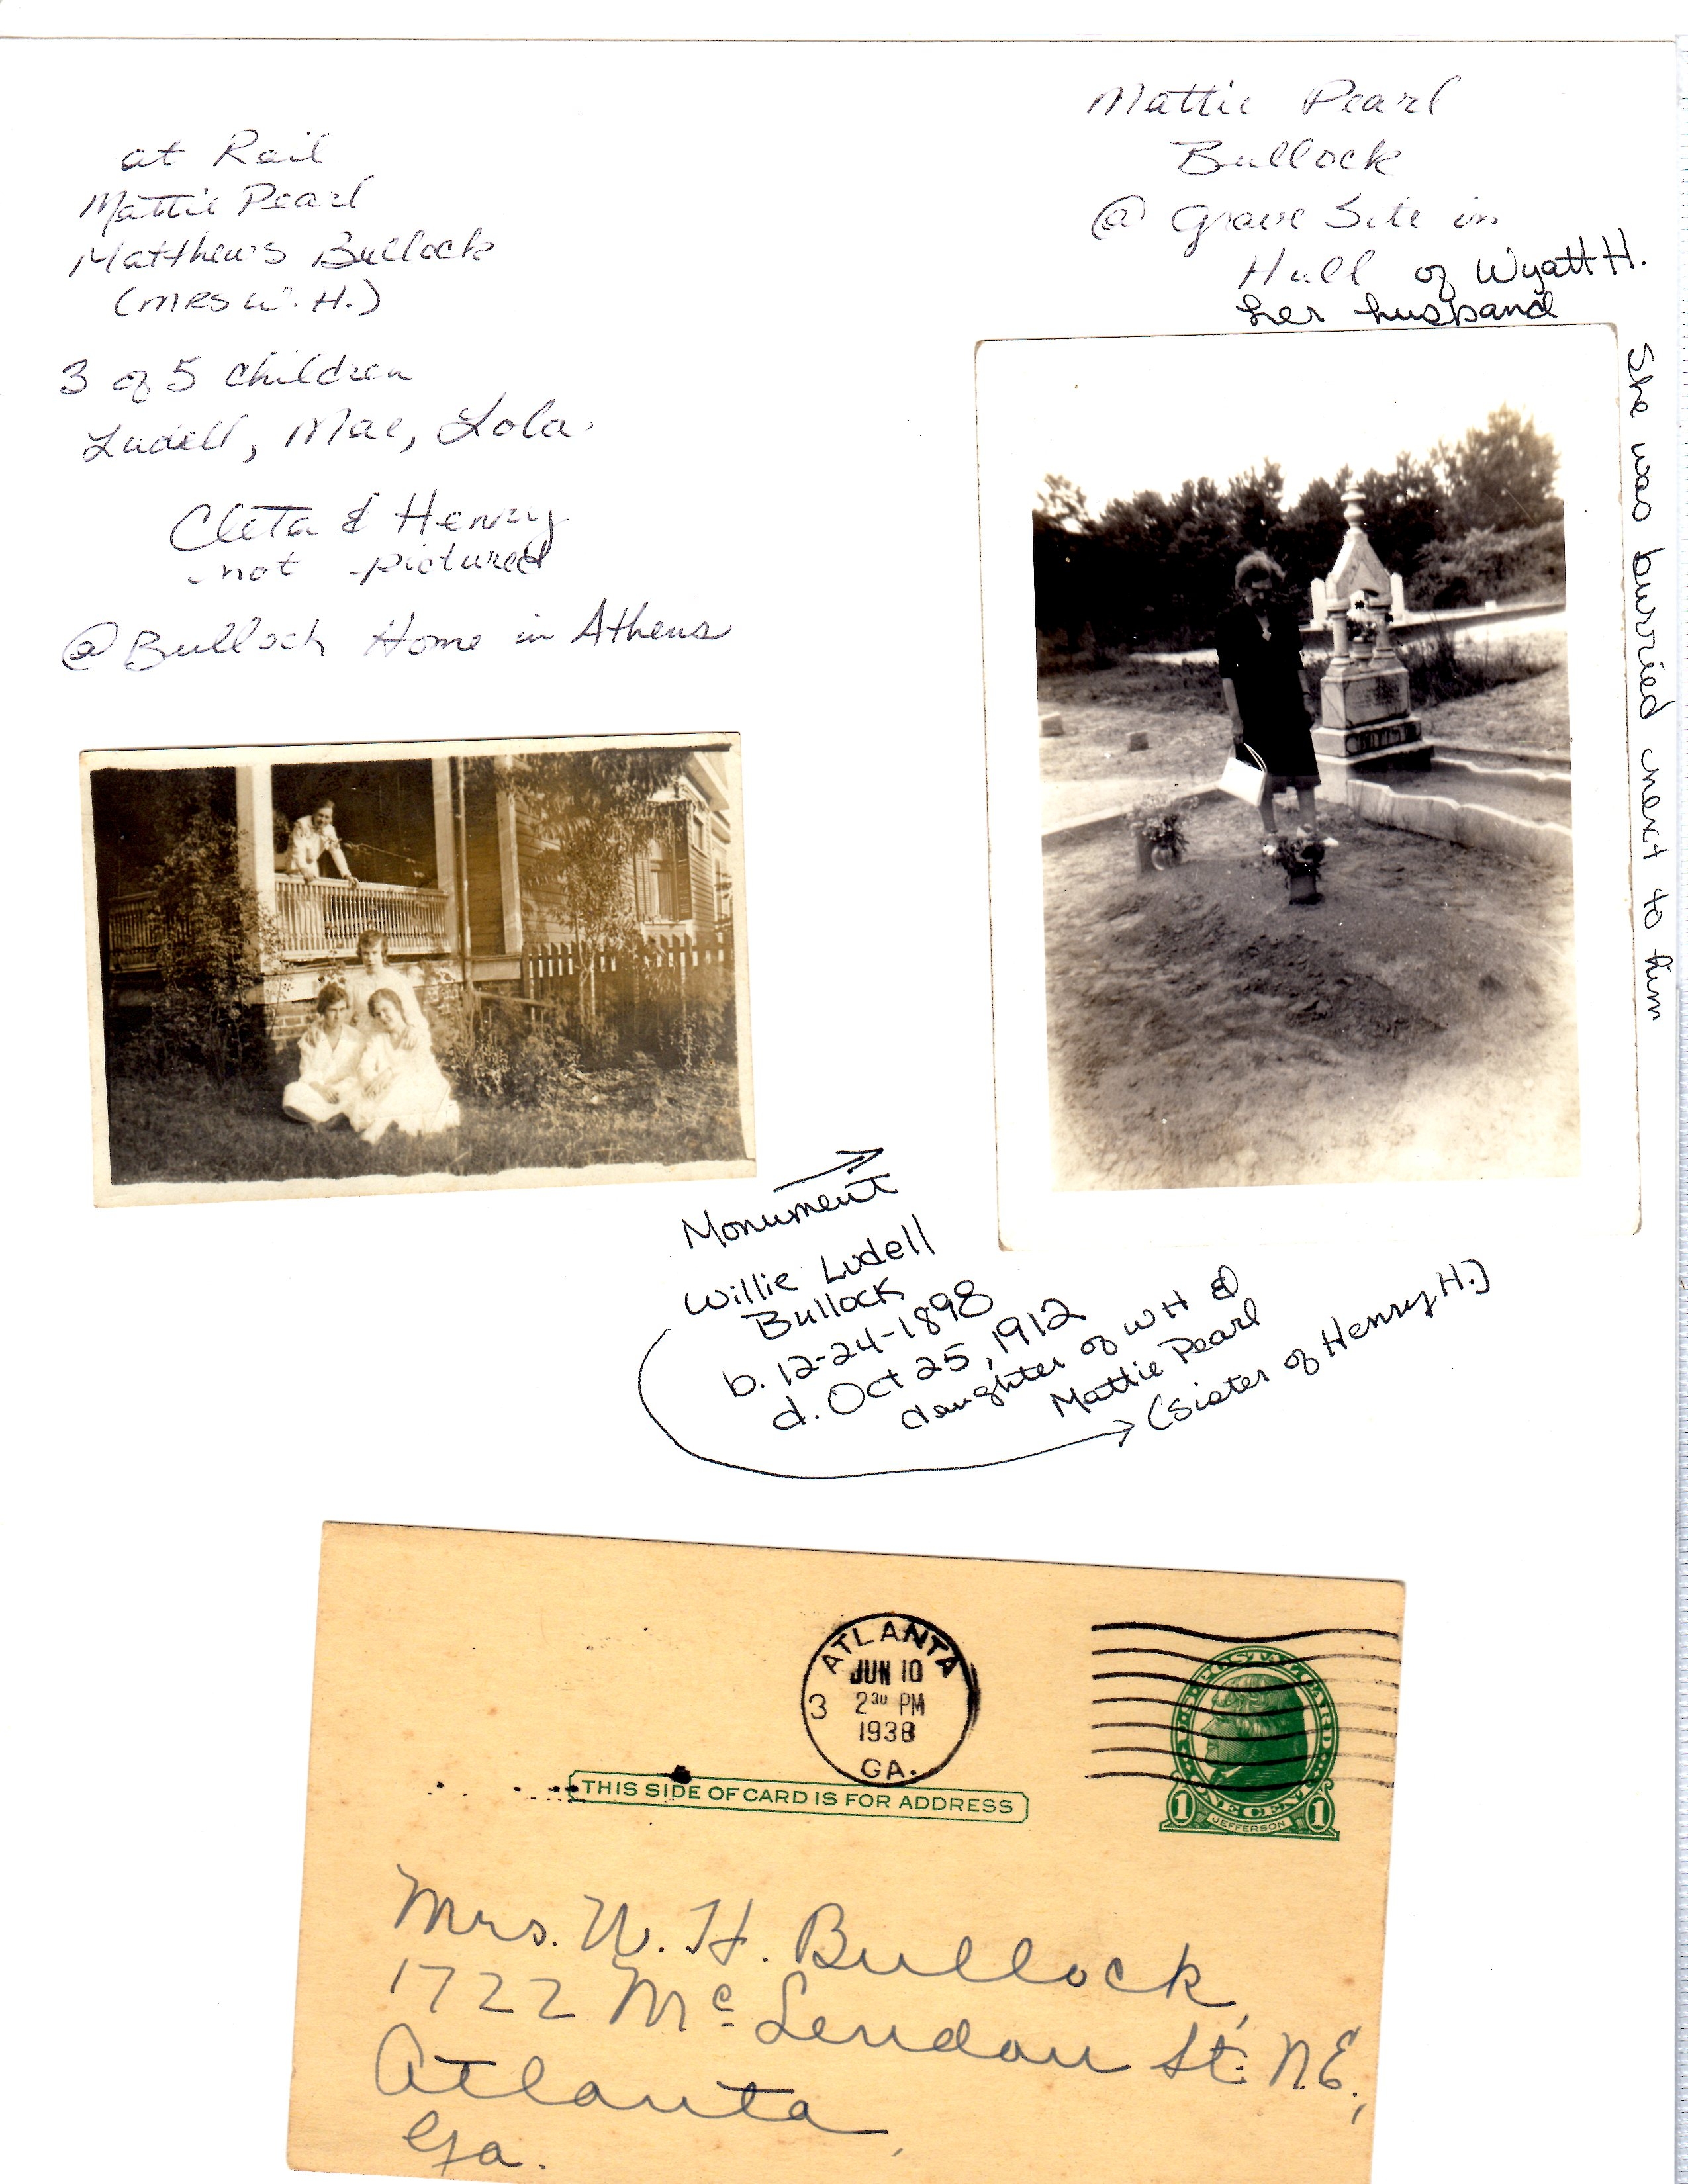 at Rail
Mattie Pearl
Matthews Bullock
(MRS W. H.)
3 of 5 children
Ludell, Mae, Lola.
Cleta & Henry
not pictured
@ Bullock Home in Athens
Mattie Pearl
Bullock
@ Grave Site in
Hull of Wyatt H.
her husband
She was burried next to him
Monument
Willie Ludell
Bullock
b. 12-24-1898
d. Oct 25, 1912
daughter of WH &
Mattie Pearl
(sister of Henry H.)
ATLANTA
JUN 10
3 2 30 PM
1938
GA.
U.S. POSTAL CARD
1 ONE CENT 1
JEFFERSON
THIS SIDE OF CARD IS FOR ADDRESS
Mrs. W. H. Bullock,
1722 Mc Lendon St. N.E.,
Atlanta,
Ga.